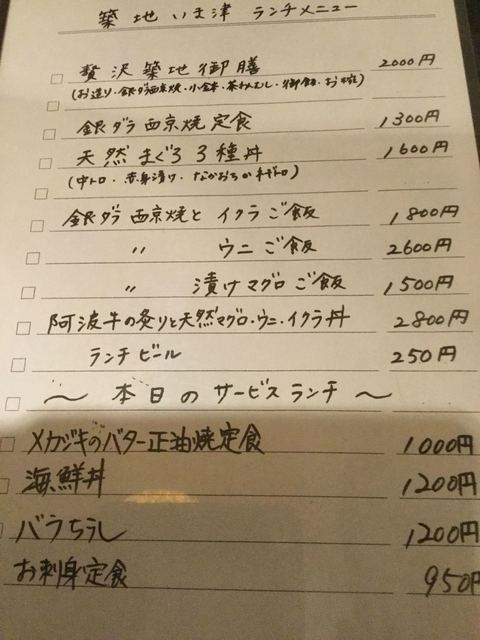 築地いま津 ランチメニュー
贅沢築地御膳 2000円
(お造り・銀ダラ西京焼・小鉢・茶わんむし・御飯・お椀)
銀ダラ西京焼定食 1300円
天然まぐろ3種丼 1600円
(中トロ・赤身漬け・なかおちかネギトロ)
銀ダラ西京焼とイクラご飯 1800円
〃 ウニご飯 2600円
〃 漬けマグロご飯 1500円
阿波牛の炙りと天然マグロ・ウニ・イクラ丼 2800円
ランチビール 250円
〜本日のサービスランチ〜
メカジキのバター正油焼定食 1000円
海鮮丼 1200円
バラちらし 1200円
お刺身定食 950円